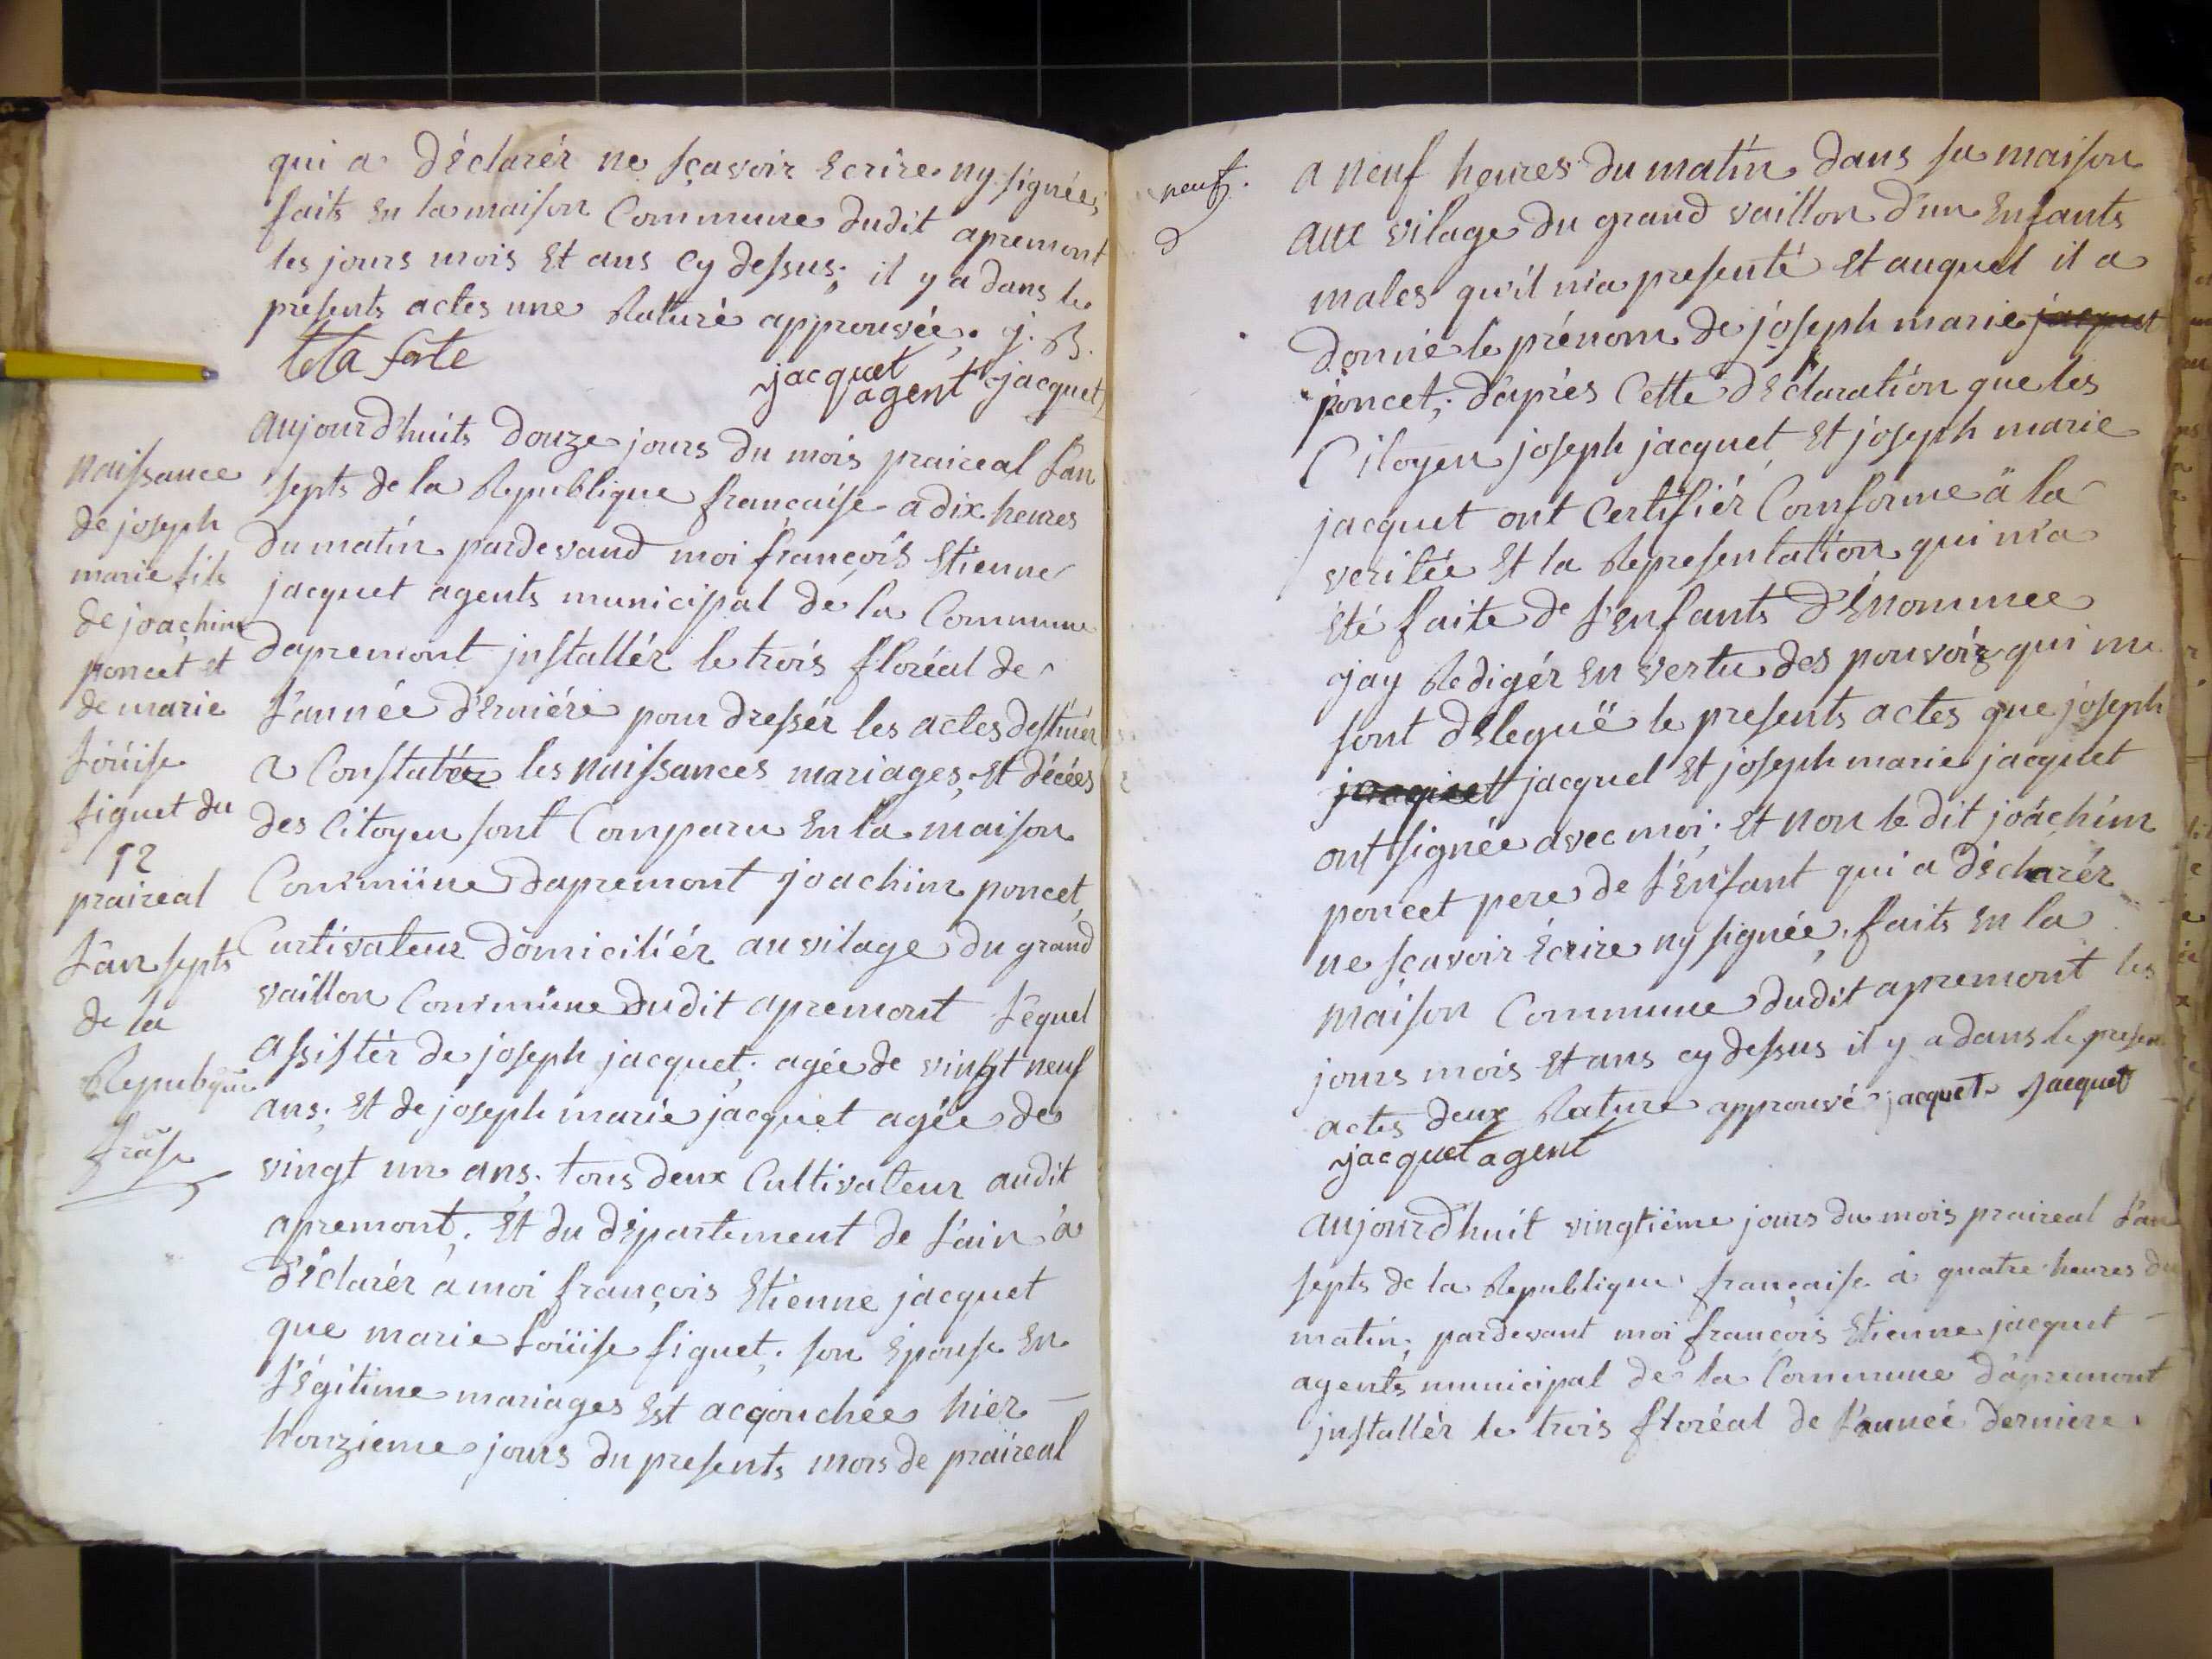 qui a déclarér ne sçavoir Ecrire ny signée,
faits En la maison Commune dudit apremont
les jours mois Et ans cy dessus; il y a dans le
presents actes une Rature approuvée. j. B.
jacquet agent jacquet
naissance
de joseph
marie fils
de joachim
poncet et
de marie
Loüise
figuet du
12
praireal
L'an septs
de la
Republique
frase
aujourd'huits douze jours du mois praireal L'an
septs de la Republique française a dix heures
du matin pardevand moi françois Etienne
jacquet agents municipal de la Commune
dapremont jnstallér le trois floréal de
L'année dErniére pour dressér les actes destinér
a Constatér les naissances mariages, Et décées
des Citoyen sont Comparu En la maison
Commüne dapremont joachim poncet,
Curtivateur domiciliér au vilage du grand
vaillon Commüne dudit apremont Léquel
assistér de joseph jacquet, agée de vingt neuf
ans; Et de joseph marie jacquet agée de
vingt un ans, tous deux Cultivateur audit
apremont, Et du département de L'ain a
déclarér a moi françois Etienne jacquet
que marie Loüise figuet, son Epouse En
Légitime mariages Est acçouchée hier
honzieme jours du presents mois de praireal
neuf.
a neuf heures du matin dans sa maison
aux vilage du grand vaillon d'un Enfants
males qu'il m'a presenté Et auquel il a
donné le prénom de joseph marie jacquet
poncet; d'aprés Cette dEclaration que les
Citoyen joseph jacquet Et joseph marie
jacquet ont Certifiér Comforme ä la
veritée Et la Representation qui m'a
Eté faite de L'Enfants dÉnommee
jay Redigér En vertu des pouvoir qui me
sont dElegüé le presents actes que joseph
jacquet jacquet Et joseph marie jacquet
ont signée avec moi; Et non le dit joachim
poncet pere de L'Enfant qui a déclarér
ne sçavoir Ecrire ny signée, faits En la
maison Commune dudit apremont les
jours mois Et ans cy dessus il y a dans le presen
actes deux Rature approuvé jacquet Jacquet
jacquet agent
aujourd'huit vingtiéme jours du mois praireal L'an
septs de la Republique française a quatre heures du
matin; pardevant moi françois Etienne jacquet
agents municipal de la Commune dapremont
jnstallér le trois floréal de L'année derniere